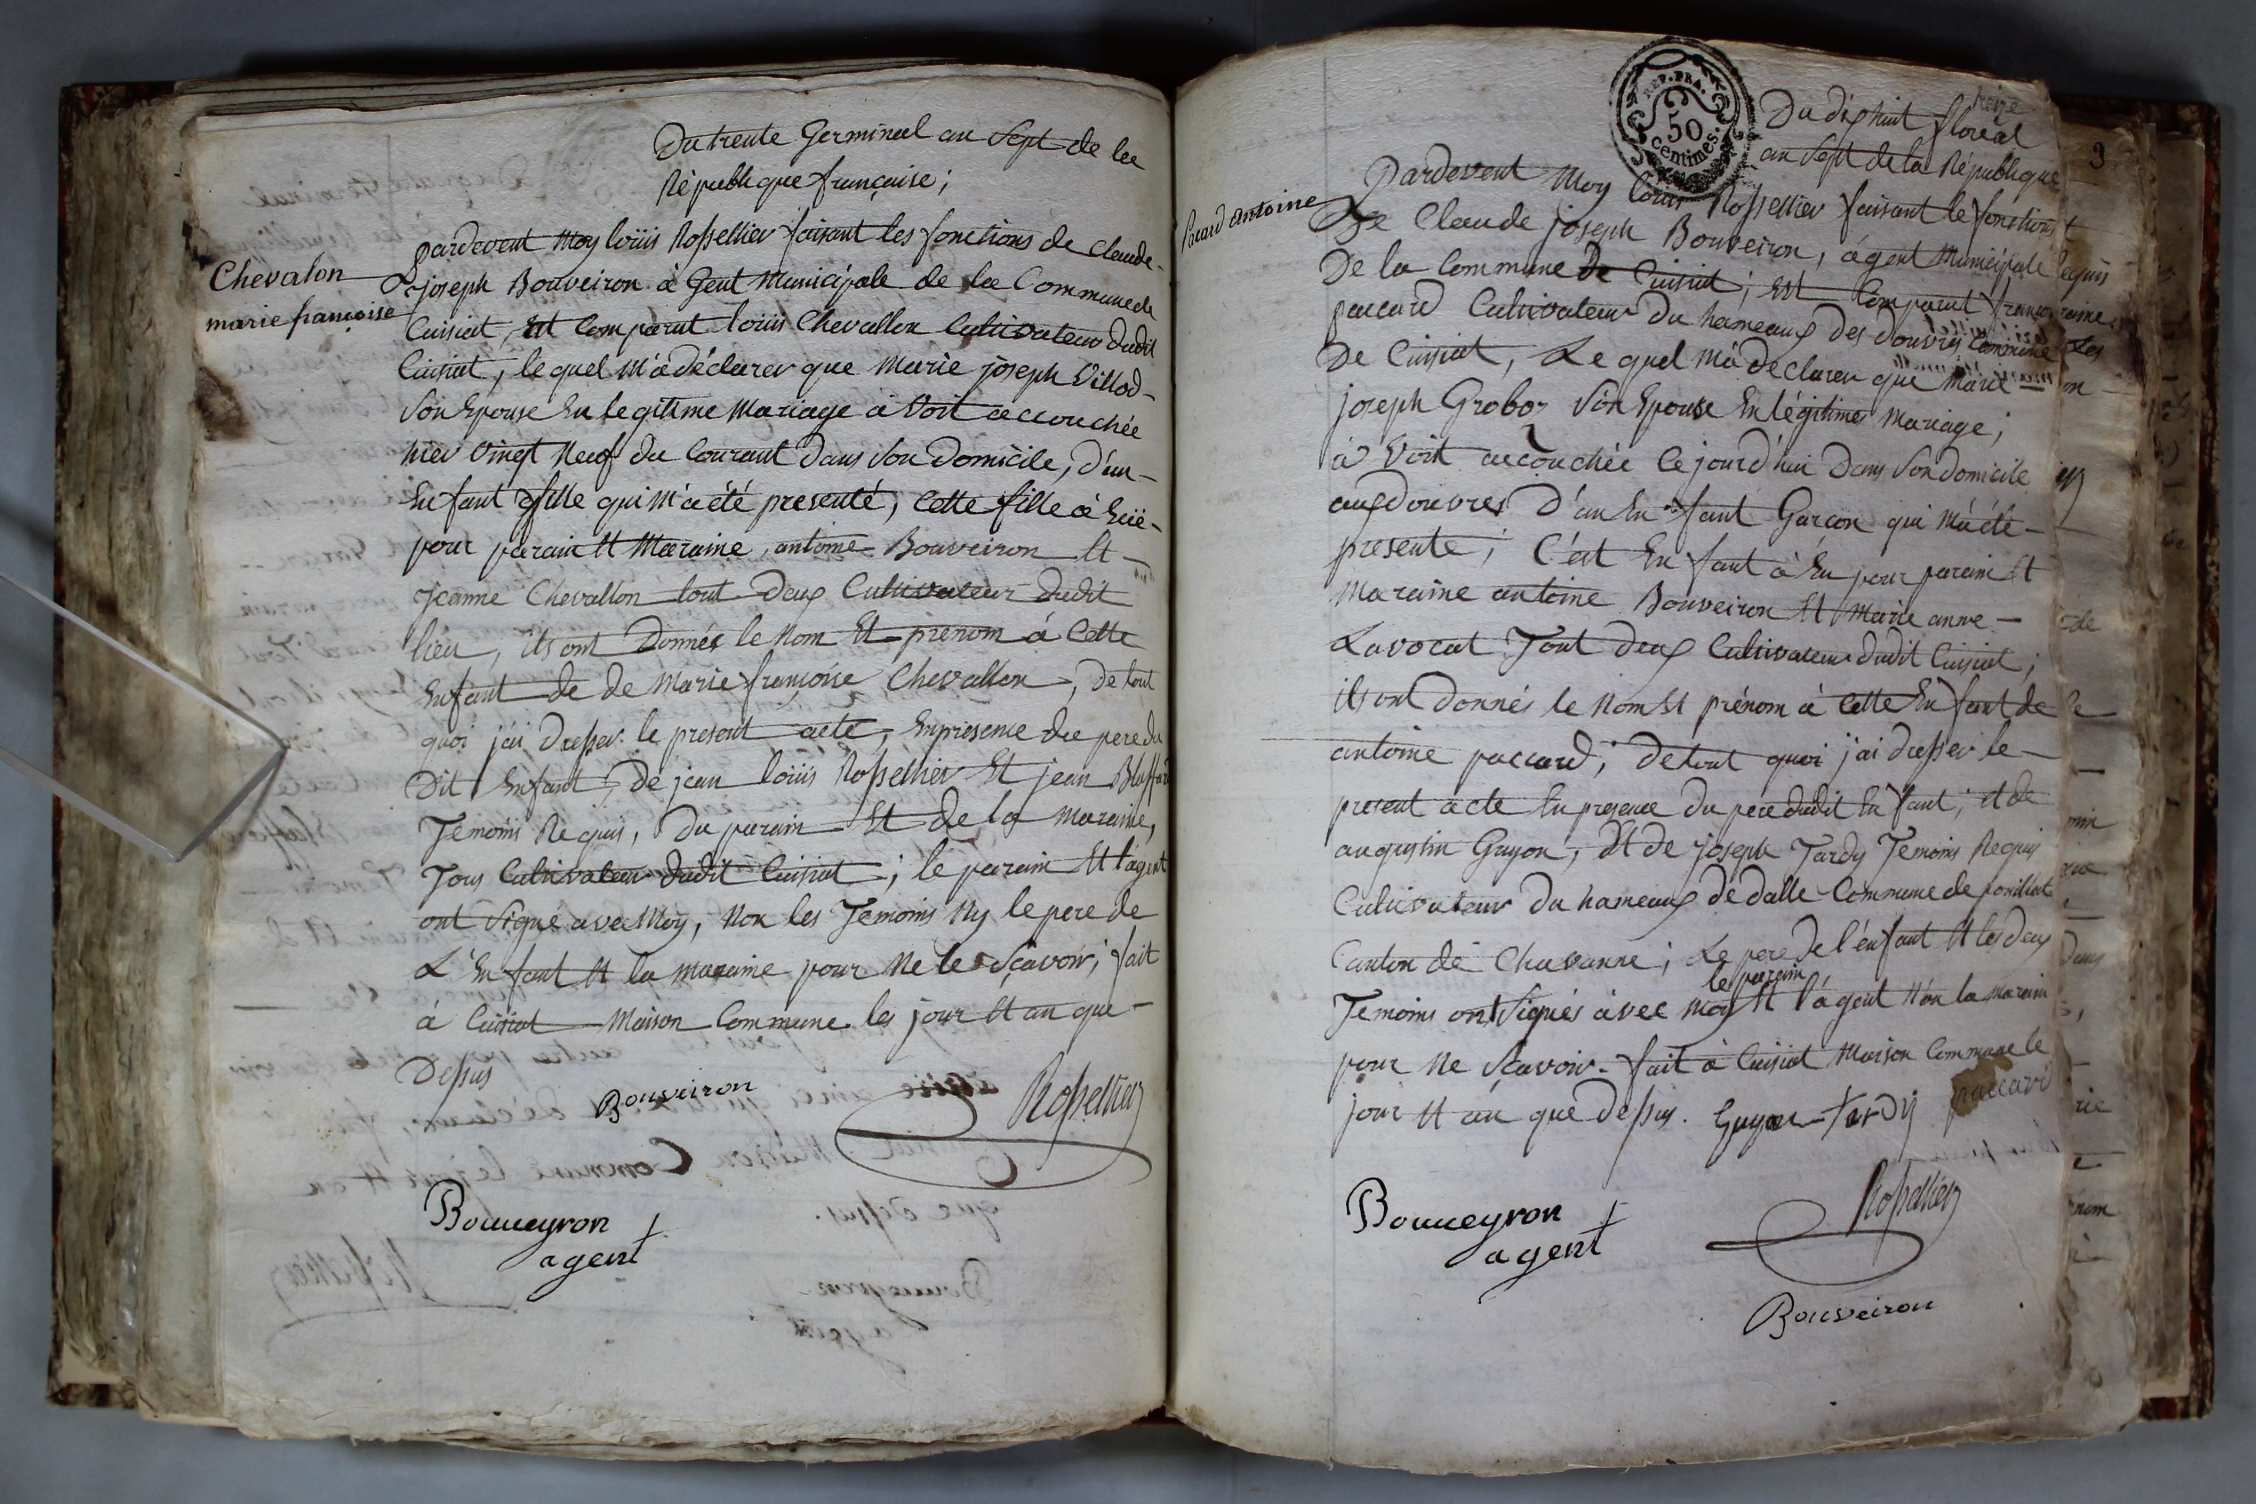 Du trente Germinal an Sept de la
République française;
Chevalon
marie françoise
pardevent Moy loüis Rossellier faisant les fonctions de claude-
joseph Bouveiron à Gent Municipale de la Commune de
Cuisiat, Est Comparut loüis Chevallon Cultivateur dudit
Cuisiat, le quel m'à déclarer que Marie joseph Villod-
Son Epouse En legitime Mariage à Voit accouchée
hier Vingt Neuf du Courant dans Son Domicile, d'un-
Enfant fille qui m'a été presenté, Cette fille à Eüe-
pour parain Et Maraine, antoine Bouveiron Et-
Jeanne Chevallon tout Deux Cultivateur dudit
lieu, ils ont Donnés le Nom Et prénom à Cette
Enfant de de Marie françoise Chevallon, de tout
quoi j'ai Dresser le present acte, En presence du pere du
Dit Enfant, de jean loüis Rossellier Et jean
Temoins Requis, du parain Et de la Maraine,
Tous Cultivateur dudit Cuisiat; le parain Et l'agent
ont Signé avec Moy, Non les Temoins Ny le pere de
L'Enfant Et la maraine pour Ne le Sçavoir; fait
à Cuisiat Maison Commune les jour Et an que-
Dessus
Bouveiron
Rossellier
Boueyron
agent
REP. FRA.
50
centimes.
9
Du dixhuit floréal
an Sept de la République
Pacard antoine
Pardevent Moy loüis Rossellier faisant le fonctions
De Claude joseph Bouveiron, àgent Municipale
De la Commune De Cuisiat; Est Comparut
paccard Cultivateur Du hameaux des Douvres Commune
De Cuisiat, Le quel M'à Declarer que Marie
joseph Groboz Son Epouse En légitimes Mariage;
à Voit accouchée Cejourd'hui Dans Son domicile
aux douvres D'un Enfant Garçon qui M'à été-
presente; C'est Enfant à Eu pour parain Et
Maraine antoine Bouveiron Et Marie anne-
Lavocat Tout deux Cultivateur dudit Cuisiat;
ils ont Donnés le Nom Et prénom à Cette Enfant de
antoine paccard; De tout quoi j'ai dresser le-
present acte En presence Du pere dudit Enfant; et de
augustin Guyon, Et de joseph Tardy Temoins Requis
Cultivateur Du hameaux de dalle Commune de pouillat
Canton de Chavanne; Le pere De l'enfant Et les deux
le parain
Temoins ont Signés avec moy Et l'àgent Non la Marain
pour Ne Sçavoir. fait à Cuisiat Maison Commune le
jour Et an que Dessus. Guyon tardy paccard
Boueyron
agent
Rossellier
Bouveiron